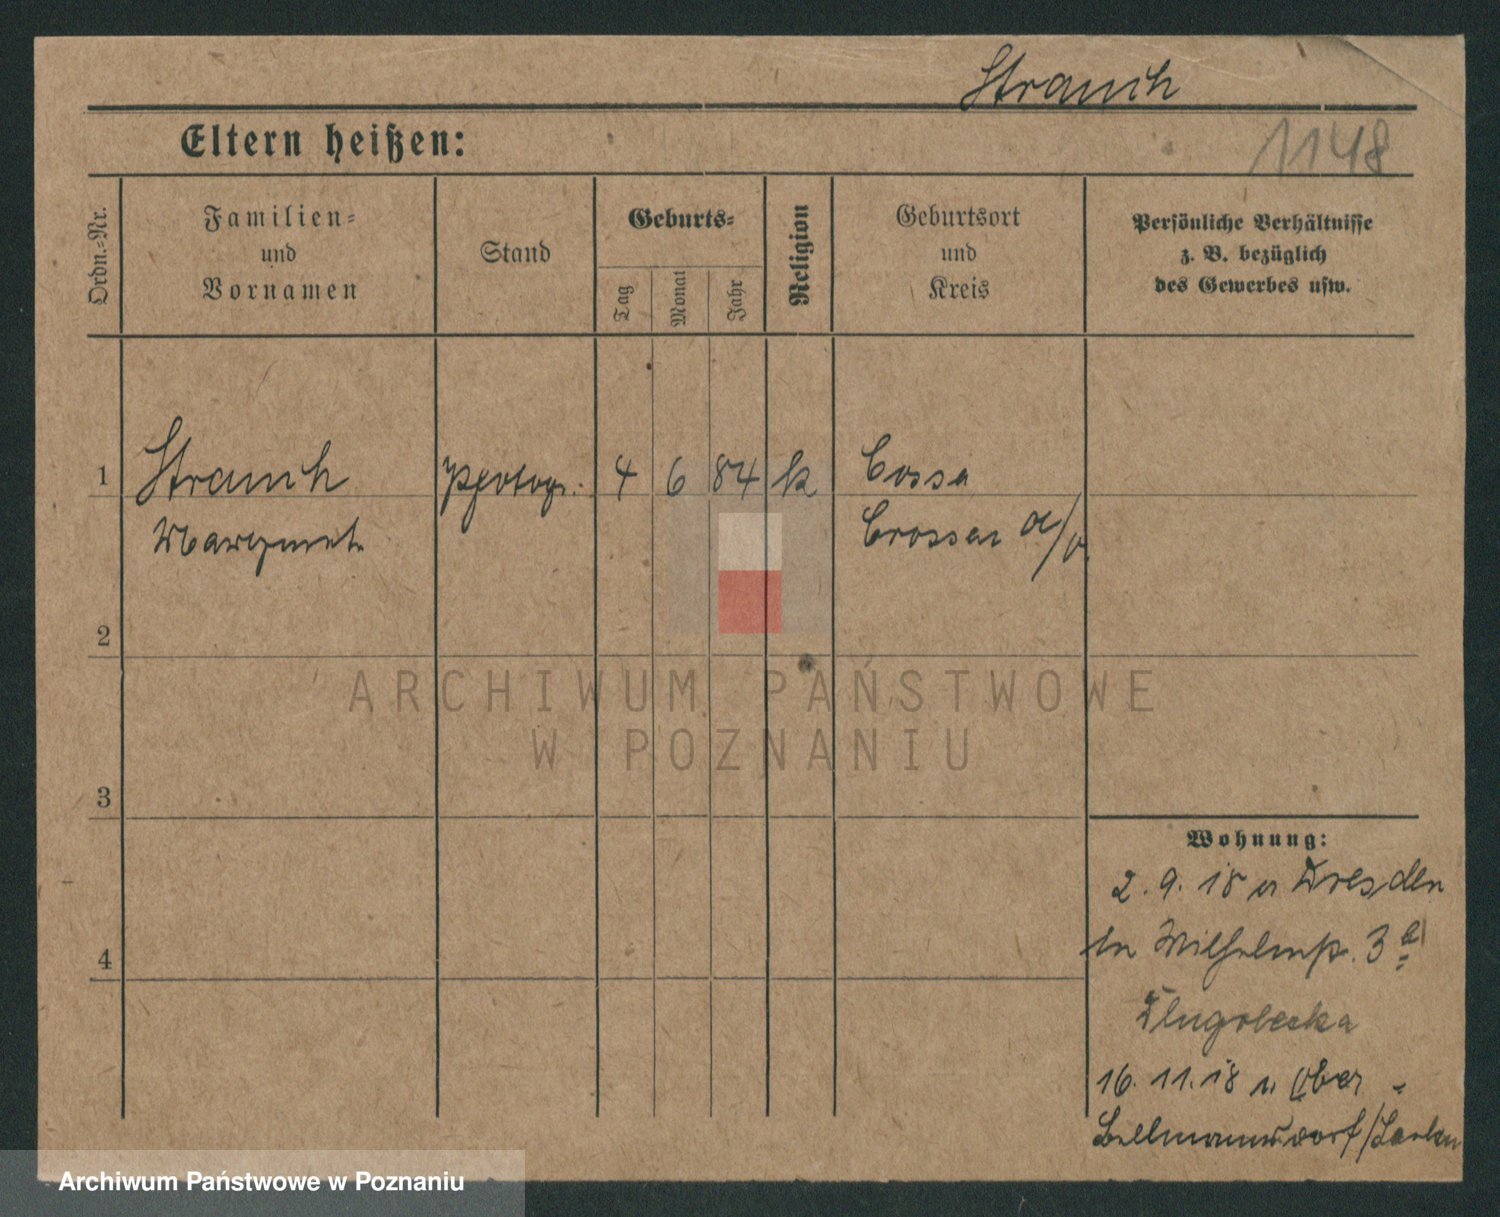 Strauch
1148
Eltern heißen:
Ordn.-Nr.
Familien-
und
Vornamen
Stand
Geburts-
Tag
Monat
Jahr
Religion
Geburtsort
und
Kreis
Persönliche Verhältnisse
z. B. bezüglich
des Gewerbes usw.
1 Strauch Photogr. 4 6 84 k Cossa
Margaret. Crossen a/O.
2
ARCHIWUM PAŃSTWOWE
W POZNANIU
3
Wohnung:
2. 9. 18 n Dresden
Wilhelmstr. 3a
4
Dlugolecka
16. 11. 18 n. Ober-
Archiwum Państwowe w Poznaniu